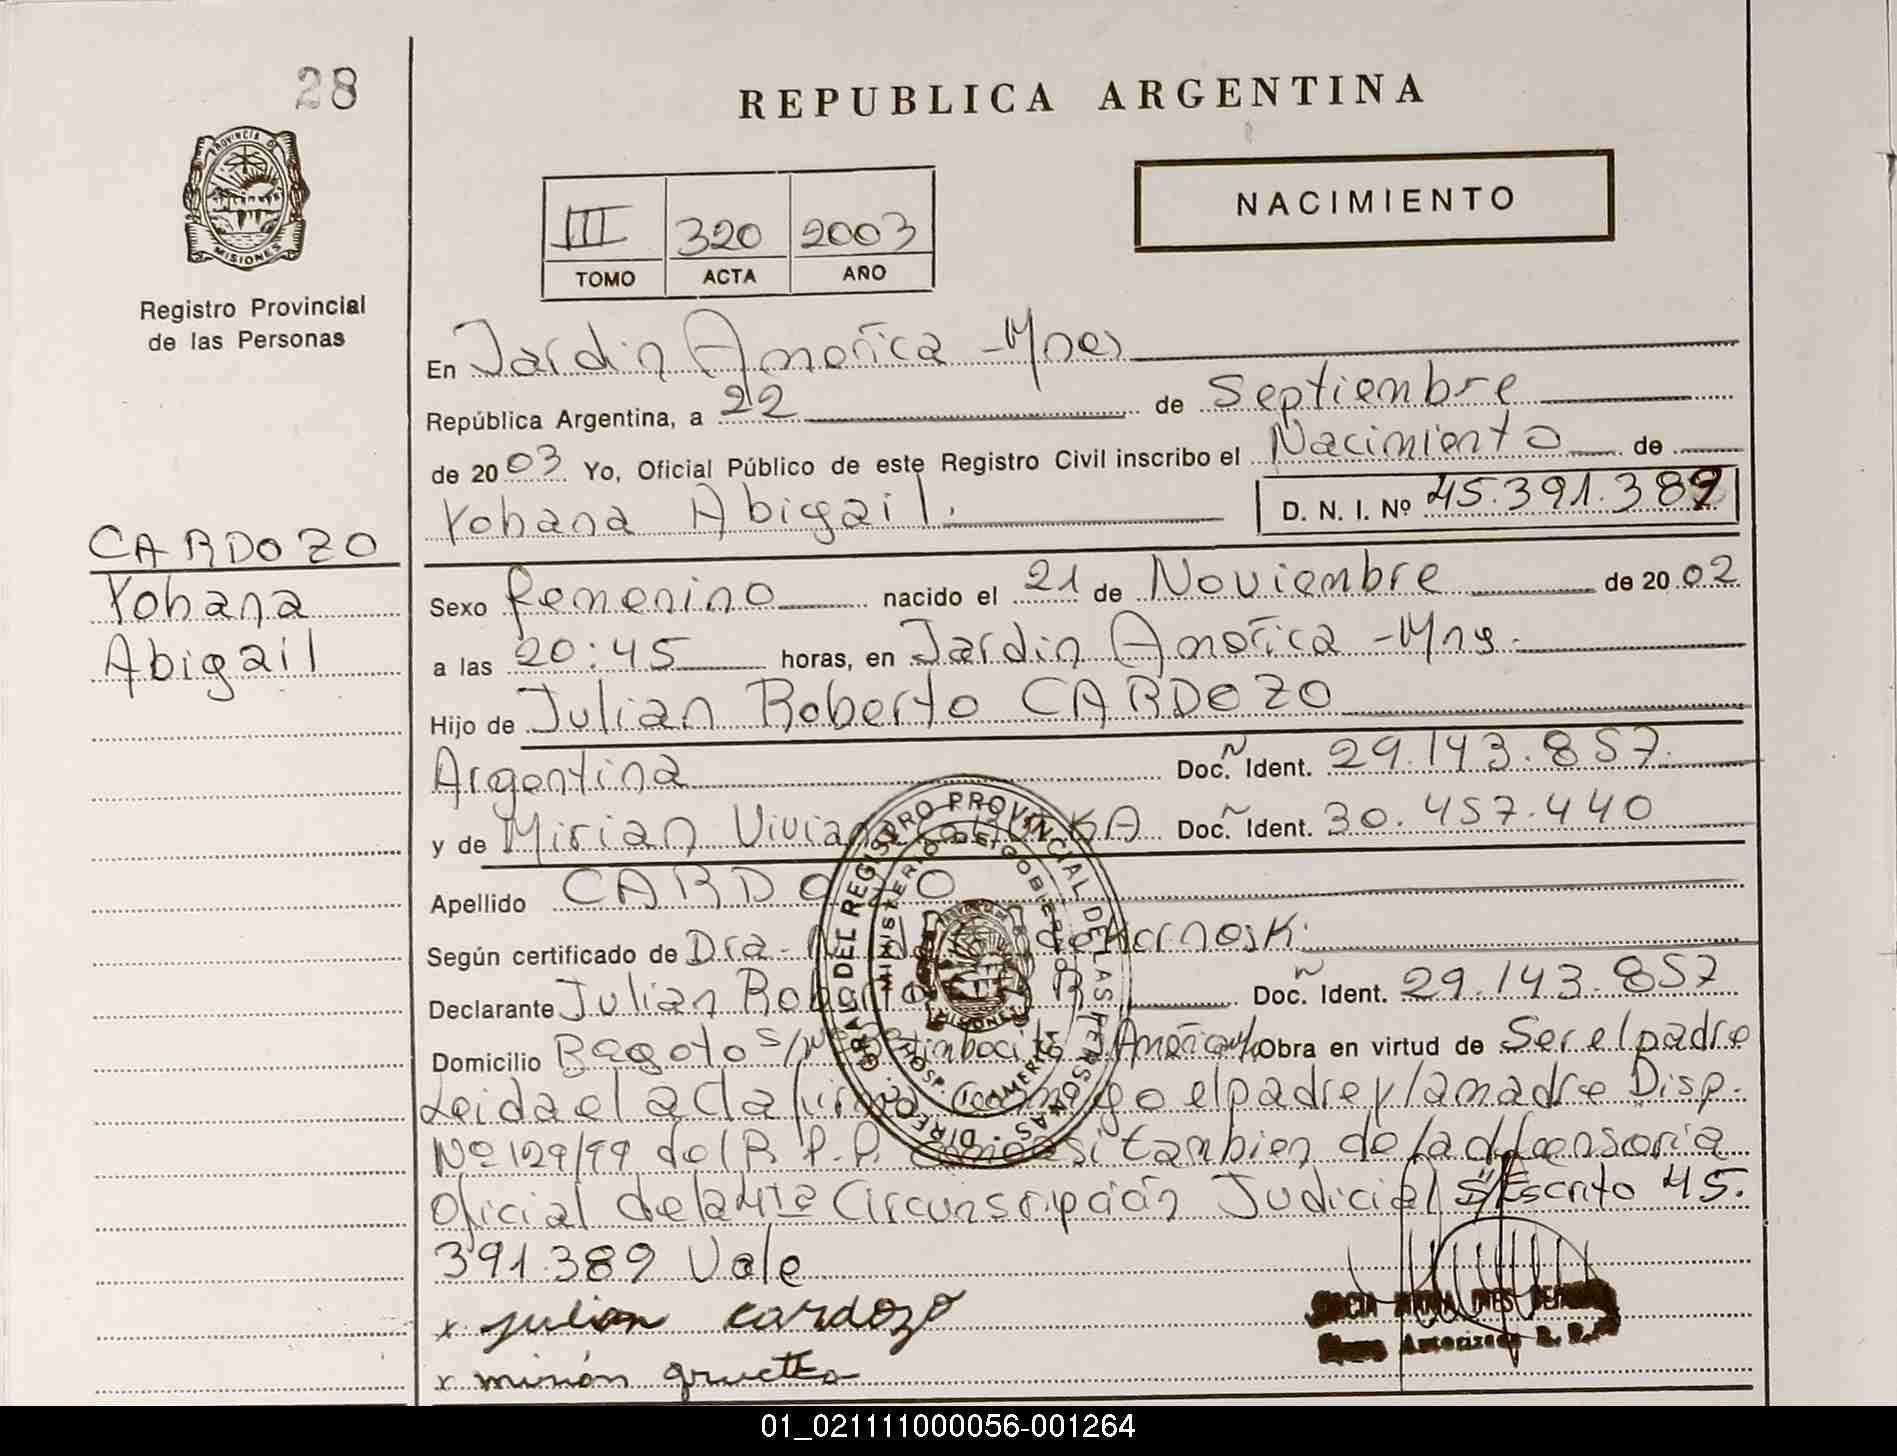 28
REPUBLICA ARGENTINA
PROVINCIA DE
MISIONES
Registro Provincial
de las Personas
NACIMIENTO
III 320 2003
TOMO ACTA AÑO
En Jardin América - Mnes
República Argentina, a 22 de Septiembre
de 2003 Yo, Oficial Público de este Registro Civil inscribo el Nacimiento de
Yohana Abigail. D. N. I. Nº 45.391.389
CARDOZO
Yohana
Abigail
Sexo Femenino nacido el 21 de Noviembre de 2002
a las 20:45 horas, en Jardin América - Mns.
Hijo de Julian Roberto CARDOZO
Argentina Doc. Ident. 29.143.857.
y de Mirian Doc. Ident. 30.457.440
Apellido CARDOZO
Según certificado de Dra.
Declarante Julian Roberto Doc. Ident. 29.143.857
Domicilio Bagoto s/nº América Obra en virtud de Ser el padre
Leida el acta firma conmigo el padre y la madre Disp.
Nº 129/99 del R.P.P. como asi tambien de la defensoria
Oficial de la 4ta Circunscripción Judicial S/Escrito 45.
391.389 Vale
x julian cardozo
x
DIREC. GRAL DEL REGISTRO PROVINCIAL DE LAS PERSONAS
MINISTERIO DE GOBIERNO
MISIONES
INES
Autorizada R. P.
01_021111000056-001264